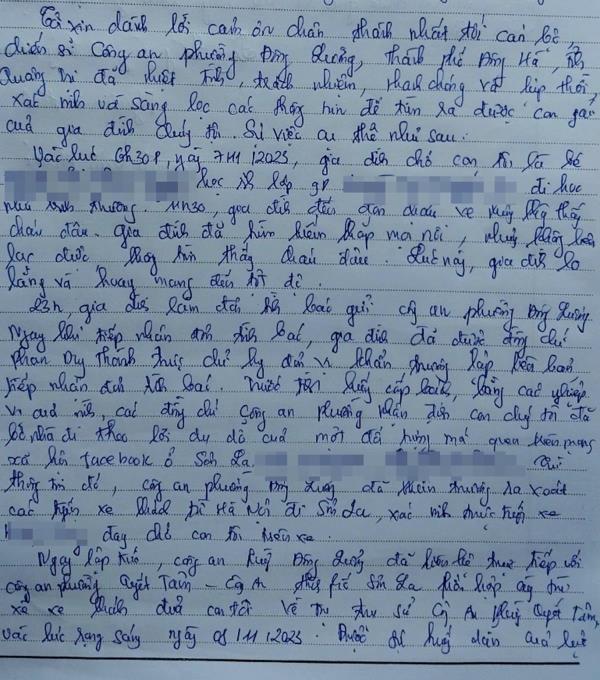 Tôi xin dành lời cảm ơn chân thành nhất tới cán bộ,
chiến sĩ Công an phường Đông Lương, thành phố Đông Hà, tỉnh
Quảng Trị đã nhiệt tình, trách nhiệm, nhanh chóng và kịp thời,
xác minh và sàng lọc các thông tin để tìm ra được con gái
của gia đình chúng tôi. Sự việc cụ thể như sau:
Vào lúc 6h30p, ngày 7/11/2023, gia đình chở con tôi là bé
học sinh lớp 9 đi học
như bình thường. 11h30, gia đình đến đón cháu về nhưng không thấy
cháu đâu. Gia đình đã tìm kiếm khắp mọi nơi, nhưng không liên
lạc được không tìm thấy cháu đâu. Lúc này, gia đình lo
lắng và hoang mang đến tột độ.
23h, gia đình làm đơn trình báo gửi công an phường Đông Lương
Ngay khi tiếp nhận đơn trình báo, gia đình đã được đồng chí
Phan Duy Thanh trực chỉ huy đơn vị khẩn trương lập biên bản
tiếp nhận đơn trình báo. Trước tình huống cấp bách, bằng các nghiệp
vụ của mình, các đồng chí công an phường nhận định con chúng tôi đã
bỏ nhà đi theo lời dụ dỗ của một đối tượng mà quen trên mạng
xã hội facebook ở Sơn La. Qua
thông tin đó, công an phường Đông Lương đã khẩn trương rà soát
các tuyến xe khách từ Hà Nội đi Sơn La, xác minh được tuyến xe
đang chở con tôi trên xe.
Ngay lập tức, công an phường Đông Lương đã liên hệ trực tiếp với
công an phường Quyết Tâm - Công An thành phố Sơn La phối hợp
xe khách đưa con tôi về trụ sở Công An phường Quyết Tâm,
vào lúc rạng sáng ngày 08/11/2023. Được sự hướng dẫn của lực